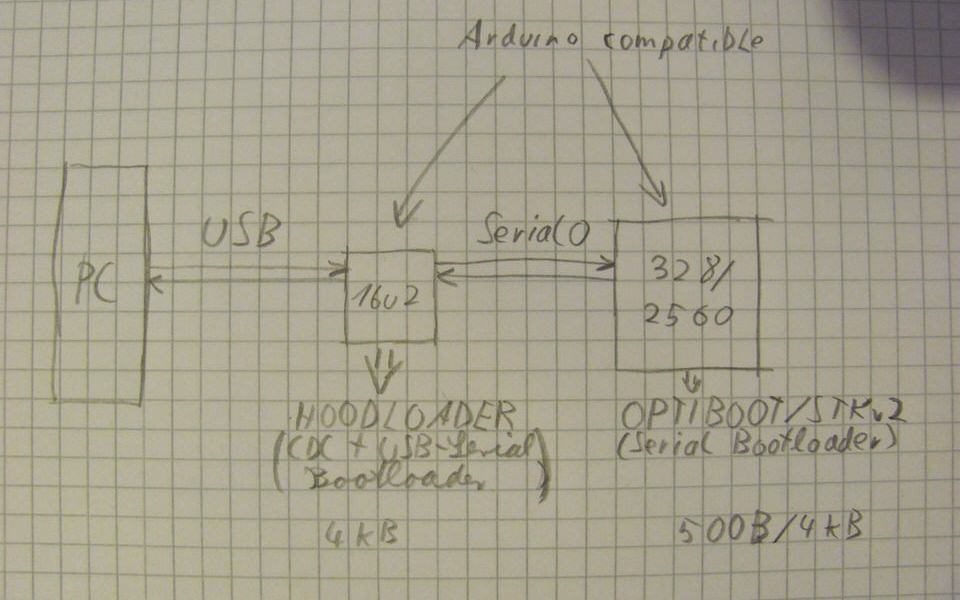 Arduino compatible
USB
Serial0
PC
16u2
328/
2560
HOODLOADER
(CDC + USB-Serial
Bootloader)
OPTIBOOT/STKv2
(Serial Bootloader)
4 kB
500B/4 kB